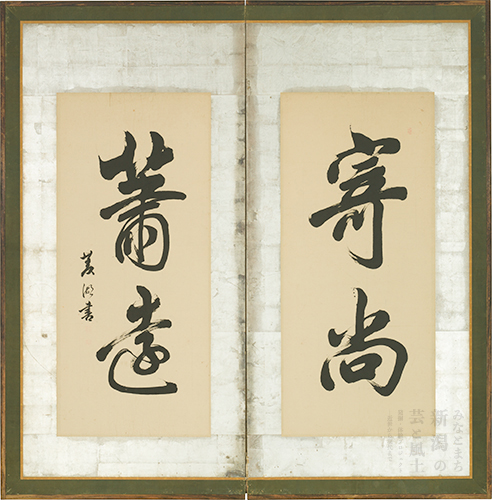 寄尚
蕭遠
菱湖書
みなとまち
新潟の
芸と風土